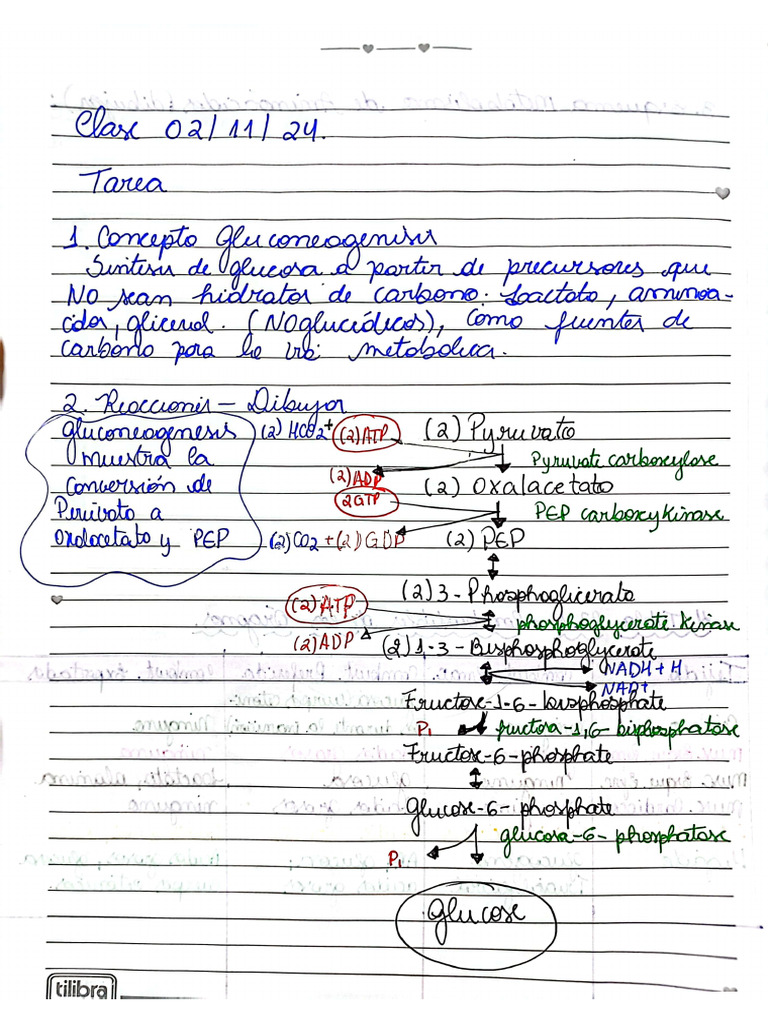 Clase 02/11/24.
Tarea
1. Concepto Gluconeogenisis
Sintesis de glucosa a partir de precursores que
NO sean hidratos de carbono: Lactato, aminoa-
cidos, glicerol. (NO glucídicos), como fuentes de
carbono para la via metabolica.
2. Reacciones - Dibujos
gluconeogenesis
muestra la
conversión de
Perivato a
Oxalocetato y PEP
(2) HCO2+ (2)ATP (2) Pyruvato
(2) ADP Pyruvate carboxylose
2GTP (2) Oxalacetato
PEP carboxykinase
(2)CO2 + (2)GDP (2) PEP
(2) 3-Phosphoglicerato
(2) ATP
phosphoglycerate kinase
(2) ADP (2) 1-3-Bisphosphoglycerate
NADH + H
NAD+
Fructose-1-6-bisphosphate
P1 fructosa-1,6-bisphosphatose
Fructose-6-phosphate
Glucose-6-phosphate
glucosa-6-phosphatase
P1
Glucose
tilibra